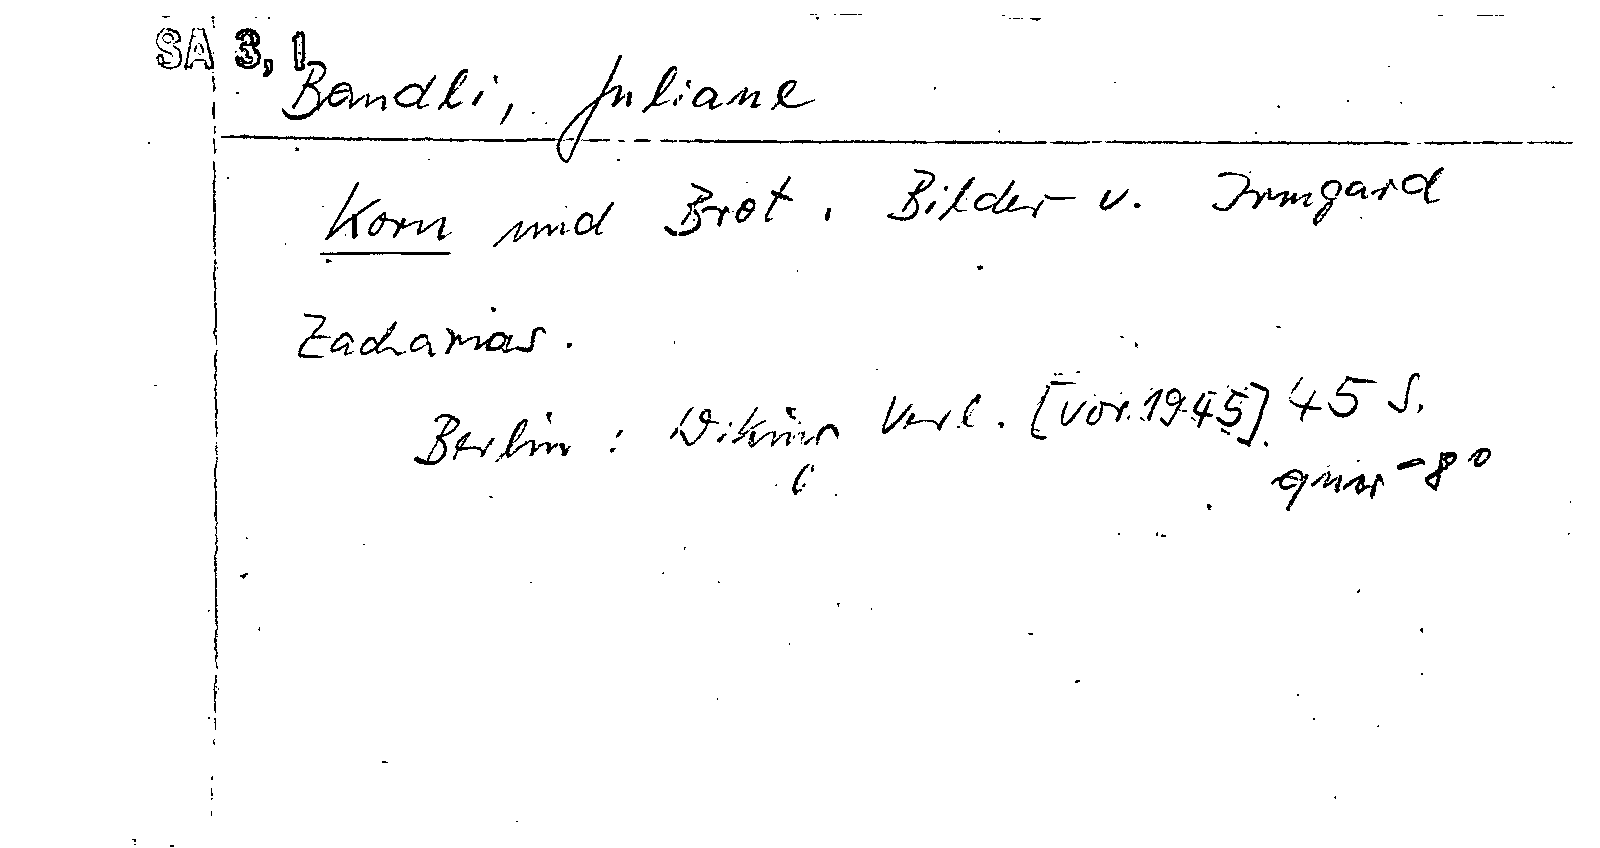 SA 3, 1
Bandli, Juliane
Korn und Brot. Bilder v. Irmgard
Zacharias.
Berlin: Wiking Verl. [vor 1945] 45 S.
quer-8°